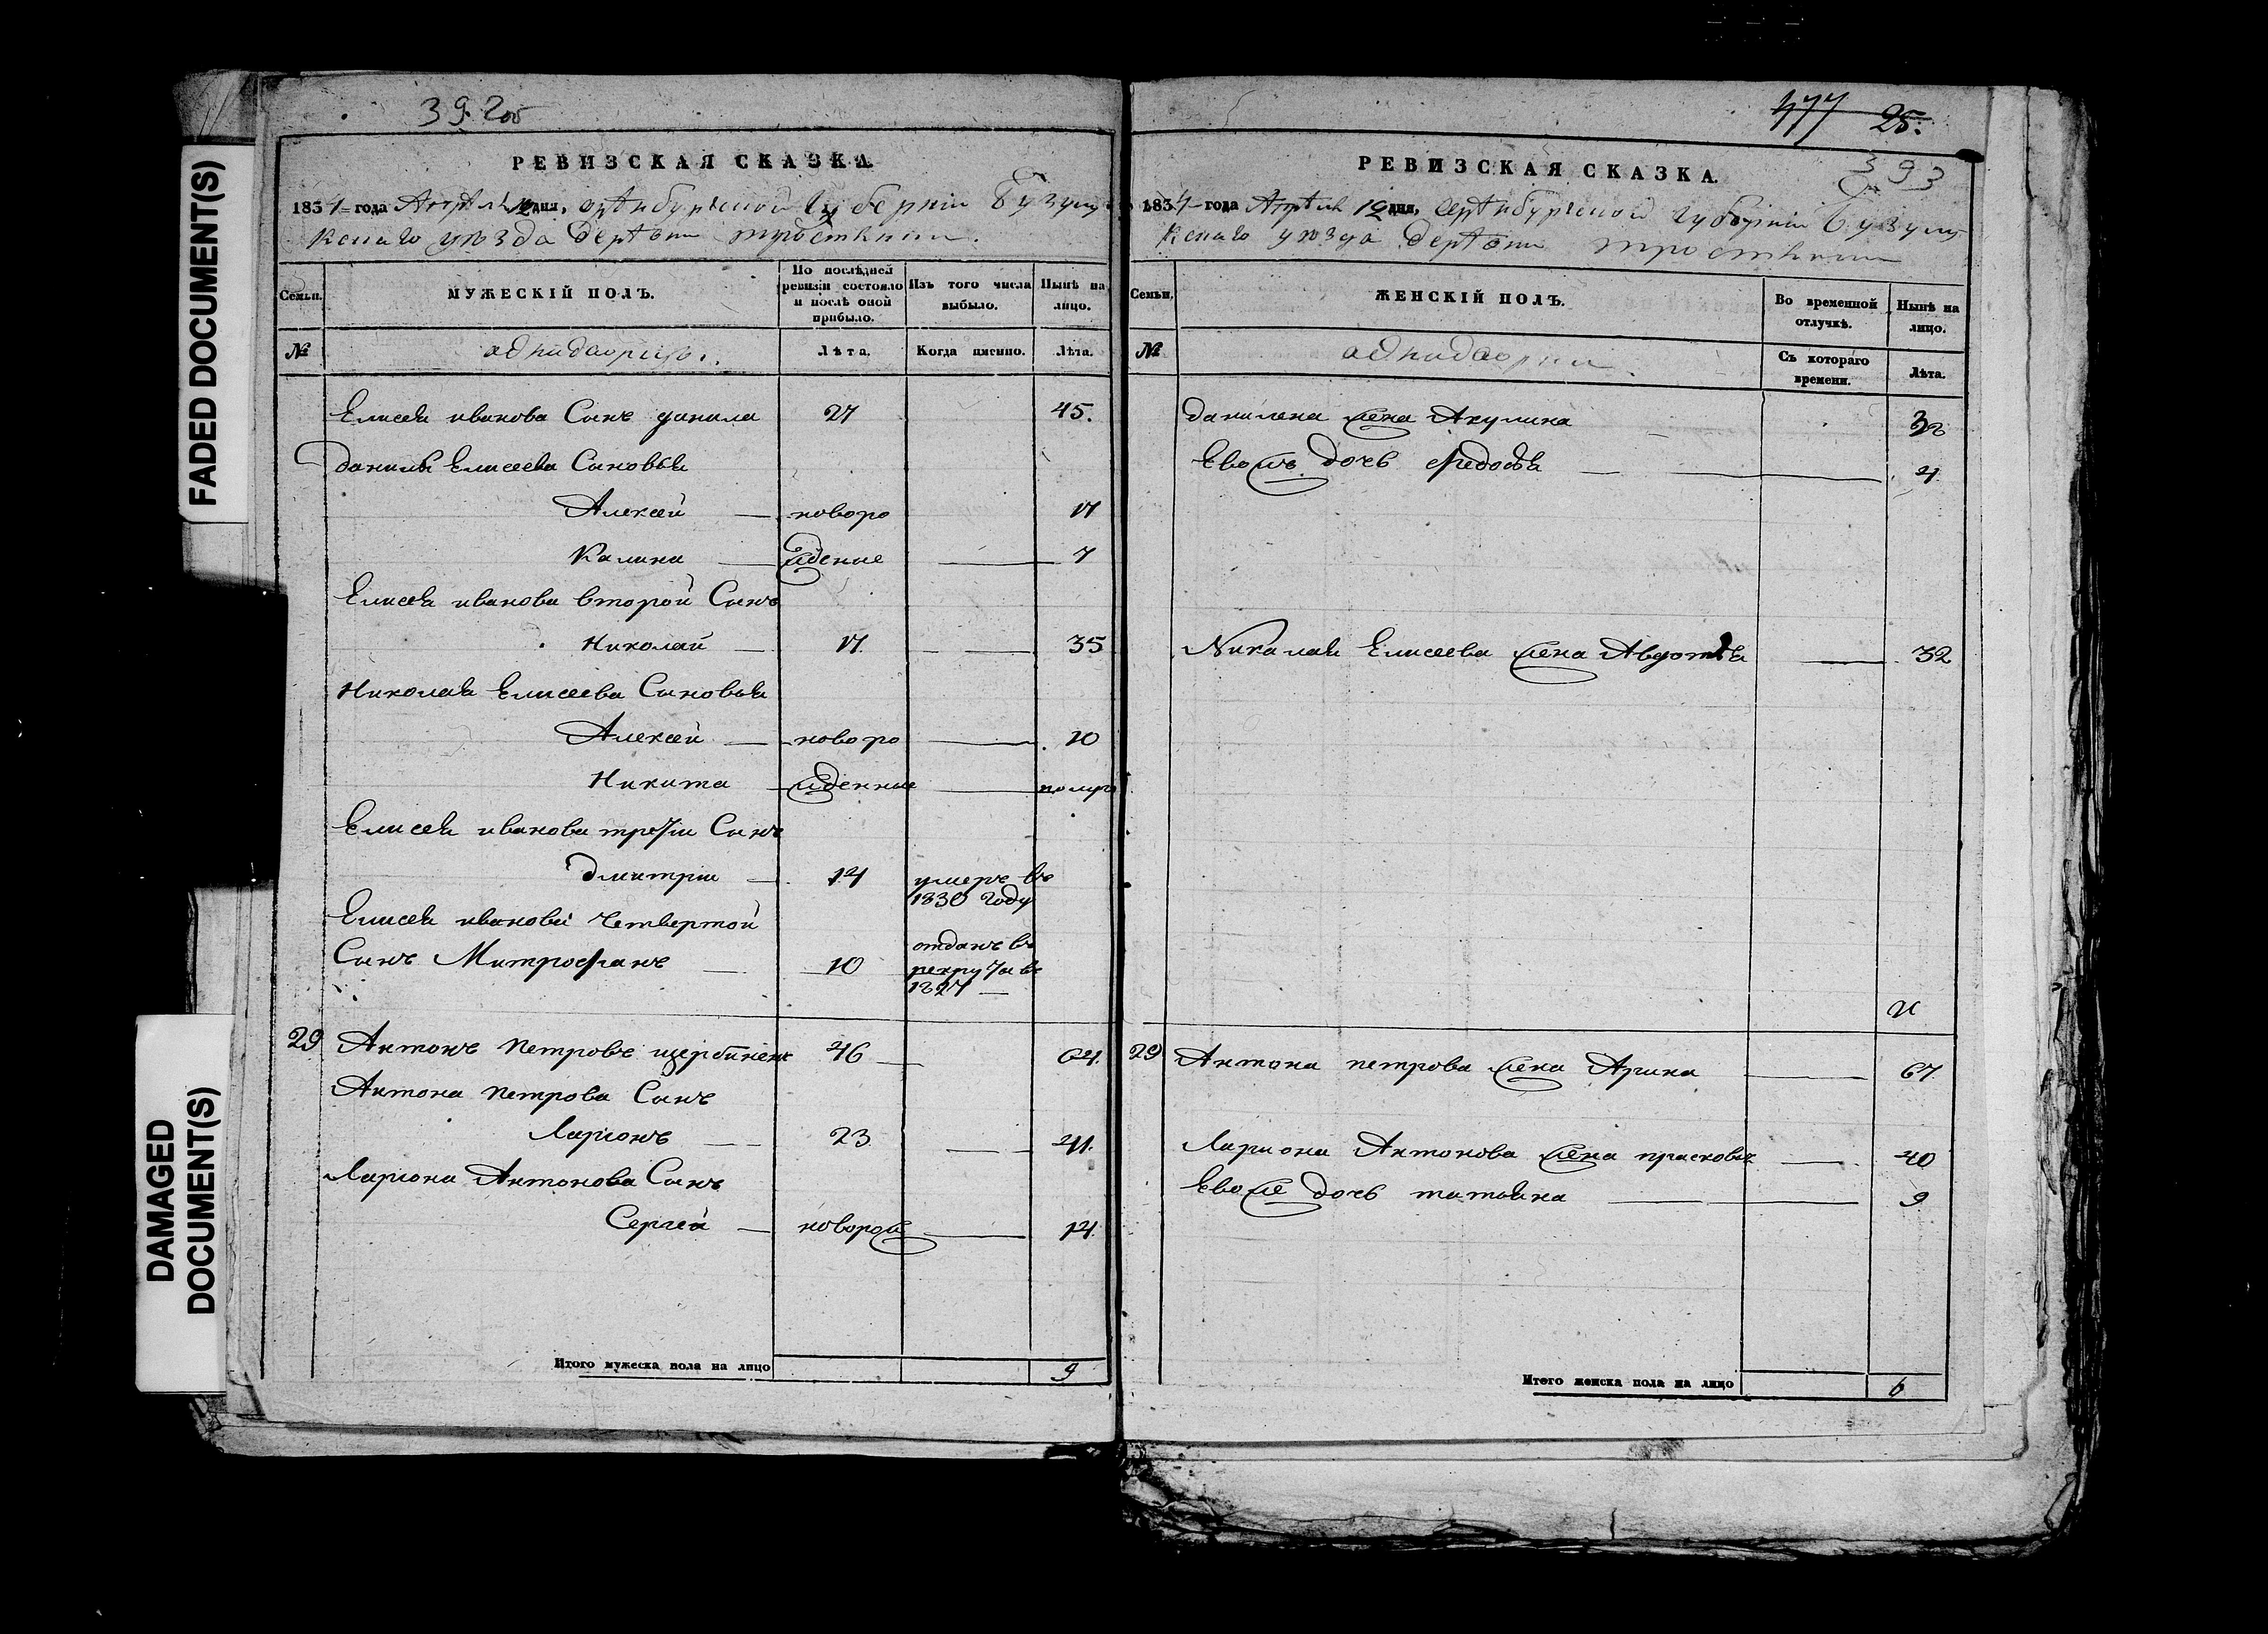 FADED DOCUMENT(S)
DAMAGED
DOCUMENT(S)
392об
РЕВИЗСКАЯ СКАЗКА.
1834 года Апрѣля 12 дня, Оренбургской губерніи Бузулу
кскаго уѣзда деревни
Семьи.
МУЖЕСКІЙ ПОЛЪ.
По послѣдней
ревизіи состояло
и послѣ оной
прибыло.
Изъ того числа
выбыло.
Нынѣ на
лицо.
№
Лѣта.
Когда именно.
Лѣта.
Елисея иванова Сынъ данила 27 45.
данилы Елисеева Сыновья
Алексей — новоро 17
Калина — жденые 7
Елисея иванова второй Сынъ
Николай — 17 35
Николая Елисеева Сыновья
Алексей — новоро 10
Никита — жденные полуго
Елисея иванова третiи Сынъ
Дмитрiи — 14 умеръ въ
1830 году
Елисея иванова четвертой
Сынъ Митрофанъ — 10 отданъ въ
рекруты въ
1827 —
29 Антонъ петровъ 46 64.
Антона петрова Сынъ
Ларионъ — 23 41.
Лариона Антонова Сынъ
Сергей — новорож 14.
Итого мужеска пола на лицо 9
477 25.
393
РЕВИЗСКАЯ СКАЗКА.
1834 года Апрѣля 12 дня, Оренбургской губерніи Бузулу
кскаго уѣзда деревни
Семьи.
ЖЕНСКІЙ ПОЛЪ.
Во временной
отлучкѣ.
Нынѣ на
лицо.
№
Съ котораго
времени.
Лѣта.
данилена жена Акулина
Евожъ дочь федосья 4
Николая Елисеева жена Авдотья 32
29 Антона петрова жена Арина 67
Лариона Антонова жена прасковья 40
Евоже дочь татьяна 9
Итого женска пола на лицо 6